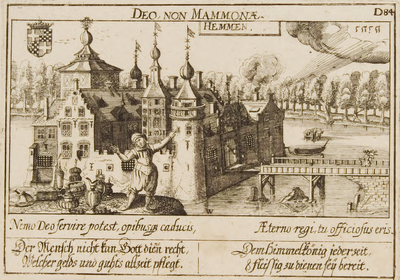 DEO, NON MAMMONÆ.
HEMMEN.
D84
Nimo Deo servire potest, opibusq caducis,
Æterno regi, tu officiosus eris.
Der Mensch nicht kan Gott dien recht,
Welcher gelds und guhts allzeit pflegt.
Dem Himmelkönig jederzeit,
sich zu dienen sey bereit.